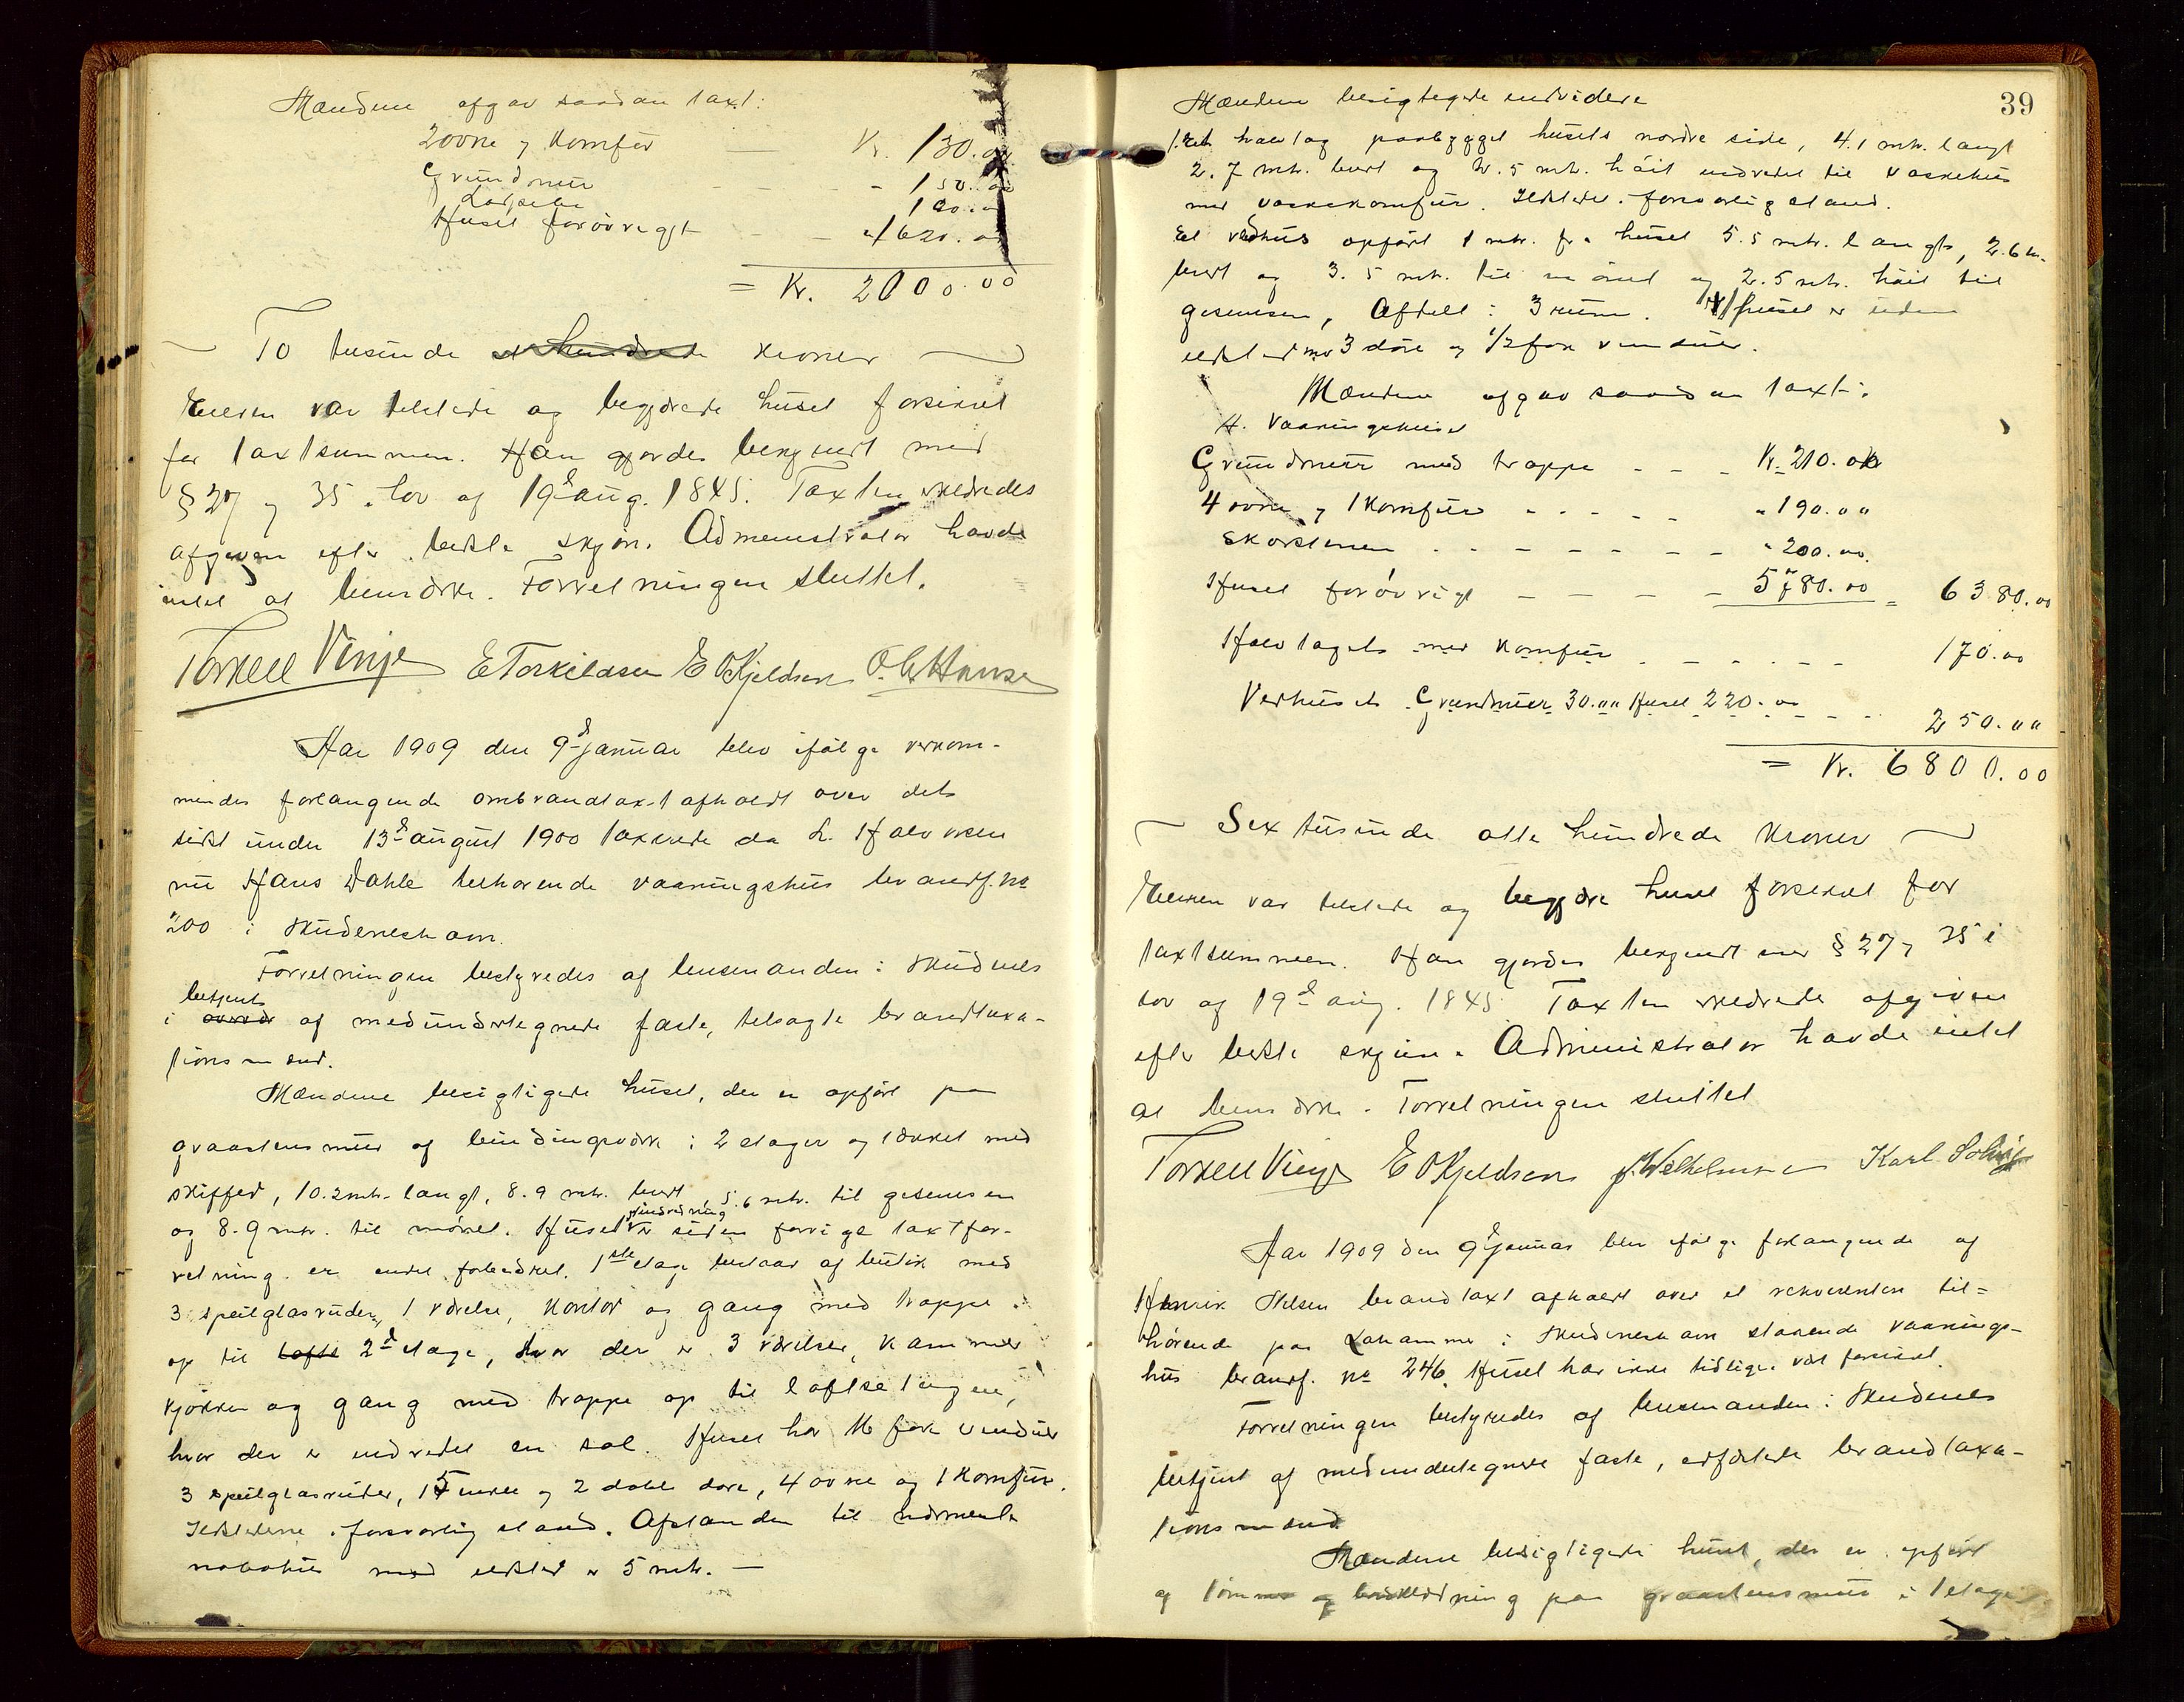 Mændene afgav saadan taxt:
2 ovne og Komfür — Kr. 130.00
Grundmur - - - 150.00
100.00
Huset forøvrigt - - " 1620.00
= Kr. 2000.00
To tusinde kroner
Eieren var tilstede og begjærede huset forsikret
for taxtsummen. Han gjordes bekjendt med
§ 27 og 35 i lov af 19d aug. 1845. Taxten erklæredes
afgiven efter bedste skjøn. Administrator havde
intet at bemærke. Forretningen sluttet.
Torkell Vinje E Torkildsen E O Kjeldsen O. C. Hansen
Aar 1909 den 9d Januar blev ifølge vedkom-
mendes forlangende ombrandtaxt afholdt over det
sidst under 13d august 1900 taxerede da L. Halvorsen
nu Hans Dahle tilhørende vaaningshus brandf. No
200 i Skudeneshavn.
Forretningen bestyredes af lensmanden i Skudenes
betjent
i overvær af medundertegnede faste, tilsagte brandtaxa-
tionsmænd.
Mændene besigtigede huset, der er opført paa
graastensmur af bindingsværk i 2 etager og tækket med
skiffer, 10.2 mtr. langt, 8.9 mtr. bredt, 5.6 mtr. til gesimsen
og 8.9 mtr. til mønet. Husets indredning er siden forrige taxtfor-
retning er endel forbedret. 1ste etage bestaar af butik med
3 speilglasruder, 1 værelse, Kontor og gang med trappe
op til lofte 2d etage, hvor der er 3 værelser, Kammer
Kjøkken og gang med trappe op til loftsetagen,
hvor der er indredet en sal. Huset har 16 fare vinduer
3 speilglasruder, 15 enkle og 2 doble døre, 4 ovne og 1 Komfür.
Ildstederne i forsvarlig stand. Afstanden til nærmeste
nabohus med ildsted er 5 mtr. —
39
Mændene besigtigede endvidere
1. Et halvtag paabygget husets nordre side, 4.1 mtr. langt
2.7 mtr. bredt og 2.5 mtr. høit indredet til vaskehus
med vaskekomfür. Ildstedet i forsvarlig stand.
Et vedhus opført 1 mtr. fra huset 5.5 mtr. langt, 2.6 m.
bredt og 3.5 mtr. til mønet og 2.5 mtr. høit til
gesimsen, Afdelt i 3 rum. Huset er uden
ildsted med 3 døre og 1/2 fare vinduer.
Mændene afgav saadan taxt:
A. Vaaningshuset
Grundmur med trappe - - - Kr. 210.00
4 ovne og 1 Komfür - - - - - " 190.00
Skorstenen - - - - - - - " 200.00
Huset forøvrigt - - - - 5780.00 = 6380.00
Halvtaget med Komfür - - - - - - 170.00
Vedhuset Grundmur 30.00 Huset 220.00 - - - 250.00
= Kr. 6800.00
Sex tusinde otte hundrede Kroner
Eieren var tilstede og begjære huset forsikret for
taxtsummen. Han gjordes bekjendt med § 27 og 35 i
lov af 19d aug. 1845. Taxten erklærede afgiven
efter bedste skjøn. Administrator havde intet
at bemærke. Forretningen sluttet
Torkell Vinje E O Kjeldsen J. Wilhelmsen Karl
Aar 1909 den 9d Januar blev ifølge forlangende af
Henrik Nilsen brandtaxt afholdt over et rekvirenten til=
hørende paa i Skudeneshavn staaende vaanings-
hus brandf. No 246. Huset har ikke tidligere vært forsikret.
Forretningen bestyredes af lensmanden i Skudenes
betjent af medundertegnede faste, edfæstede brandtaxa-
tionsmænd
Mændene besigtigede huset, der er opført
af tømmer og bordklædning paa graastensmur i 1 etage